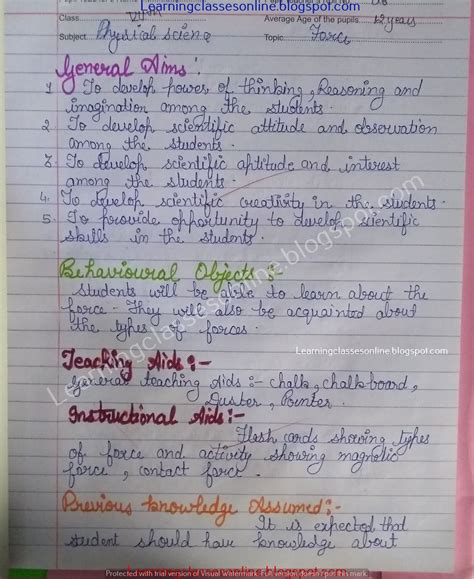 Learningclassesonline.blogspot.com
Class VIIth Average Age of the pupils 12 years
Subject Physical science Topic Force
General Aims :
1. To develop power of thinking, Reasoning and
imagination among the students.
2. To develop scientific attitude and observation
among the students.
3. To develop scientific aptitude and interest
among the students.
4. To develop scientific creativity in the students.
5. To provide opportunity to develop scientific
skills in the students.
Behavioural Objects :-
Students will be able to learn about the
force. They will also be acquainted about
the types of forces.
Learningclassesonline.blogspot.com
Learningclassesonline.blogspot.com
Teaching Aids :-
General teaching Aids :- chalk, chalkboard,
Duster, Pointer.
Instructional Aids :-
Flash cards showing types
of force and activity showing magnetic
force, contact force.
Previous knowledge Assumed :-
It is expected that
student should have knowledge about
Protected with trial version of Visual Watermark. Full version doesn't put this mark.